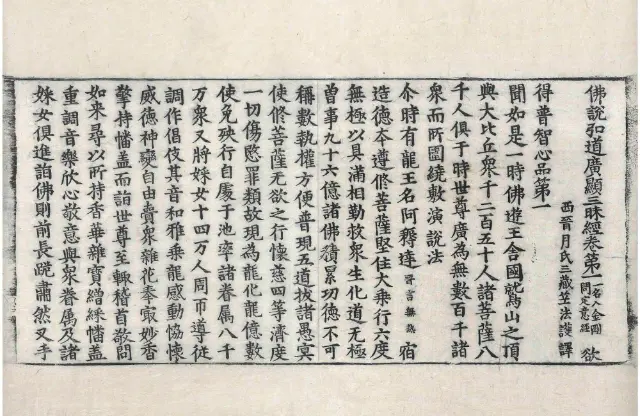 佛說弘道廣顯三昧經卷第一 一名入金剛問定意經 欲
西晉月氏三藏竺法護譯
得普智心品第一
聞如是一時佛遊王舍國鷲山之頂
與大比丘衆千二百五十人諸菩薩八
千人俱于時世尊廣為無數百千諸
衆而所圍繞敷演說法
尒時有龍王名阿耨達 晉言無熱 宿
造德本遵修菩薩堅住大乗行六度
無極以具滿相勤救衆生化道无極
曾事九十六億諸佛積累功德不可
稱數執權方便普現五道拔諸愚冥
使修菩薩无欲之行懷慈四等濟度
一切傷愍罪類故現為龍化龍億數
使免殃行自處于池率諸眷属八千
万衆又將婇女十四万人周帀導從
調作倡伎其音和雅乗龍感動恊懷
威德神變自由賷衆雜花奉取妙香
擎持幡盖而詣世尊至輙稽首敬問
如来尋以所持香華雜寳繒綵幡盖
重調音樂欣心敬意與衆眷属及諸
婇女俱進詣佛則前長跪肅然叉手